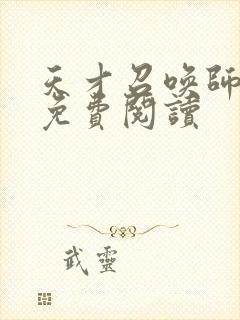 天才召喚師
免費閱讀
武靈